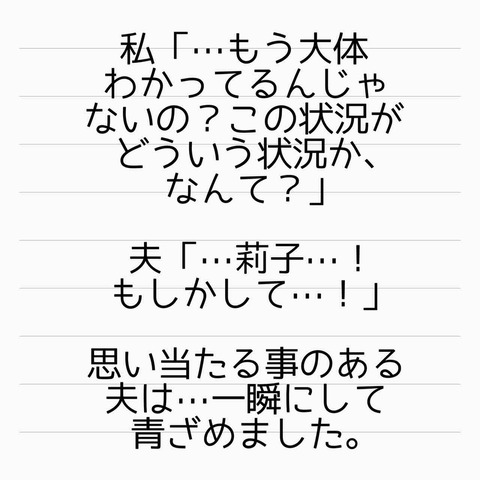 私「…もう大体
わかってるんじゃ
ないの？この状況が
どういう状況か、
なんて？」
夫「…莉子…！
もしかして…！」
思い当たる事のある
夫は…一瞬にして
青ざめました。